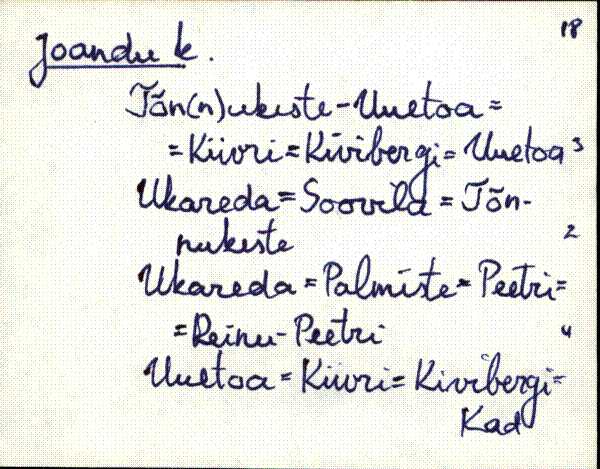 18
Joandu k.
Tõn(n)ukeste-Uuetoa =
= Kiivri = Kivibergi = Uuetoa 3
Ukareda = Soovild = Tõn-
nukeste 2
Ukareda = Palmiste = Peetri =
= Reinu-Peetri 4
Uuetoa = Kiivri = Kivibergi =
Kad